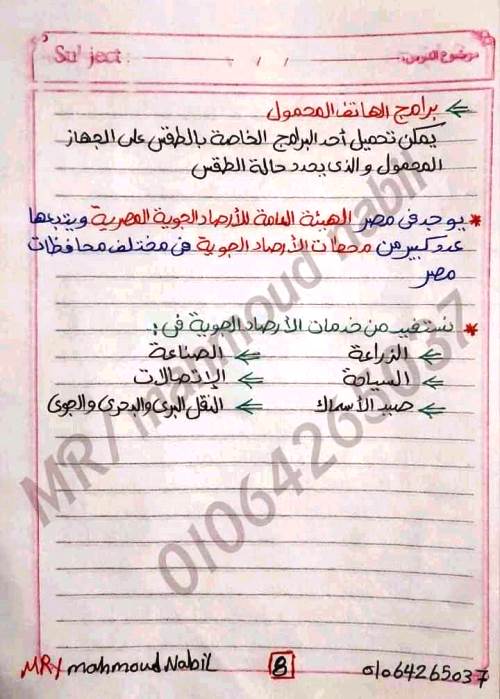 Su' ject :
/ /
موضوع الدرس:
برامج الهاتف المحمول
يمكن تحميل أحد البرامج الخاصة بالطقس على الجهاز
المحمول والذى يحدد حالة الطقس
* يوجد فى مصر الهيئة العامة للأرصاد الجوية المصرية ويتبعها
عدد كبير من محطات الأرصاد الجوية فى مختلف محافظات
مصر
* نستفيد من خدمات الأرصاد الجوية فى :
الزراعة ← الصناعة
السياحة ← الإتصالات
صيد الأسماك ← النقل البرى والبحرى والجوى
MR/ mahmoud nabil
01064265037
MR/ mahmoud Nabil
8
01064265037